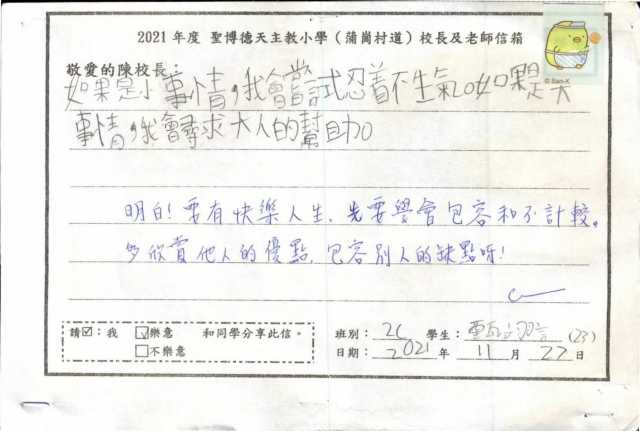 2021年度 聖博德天主教小學（蒲崗村道）校長及老師信箱
© San-X
敬愛的陳校長：
如果是小事情，我會嘗試忍着不生氣。如果是大
事情，我會尋求大人的幫助。
明白！要有快樂人生，先要學會包容和不計較。
多欣賞他人的優點，包容別人的缺點呀！
請☑：我 ☑樂意 和同學分享此信。
□不樂意
班別：2C 學生： (23)
日期：2021年11月27日